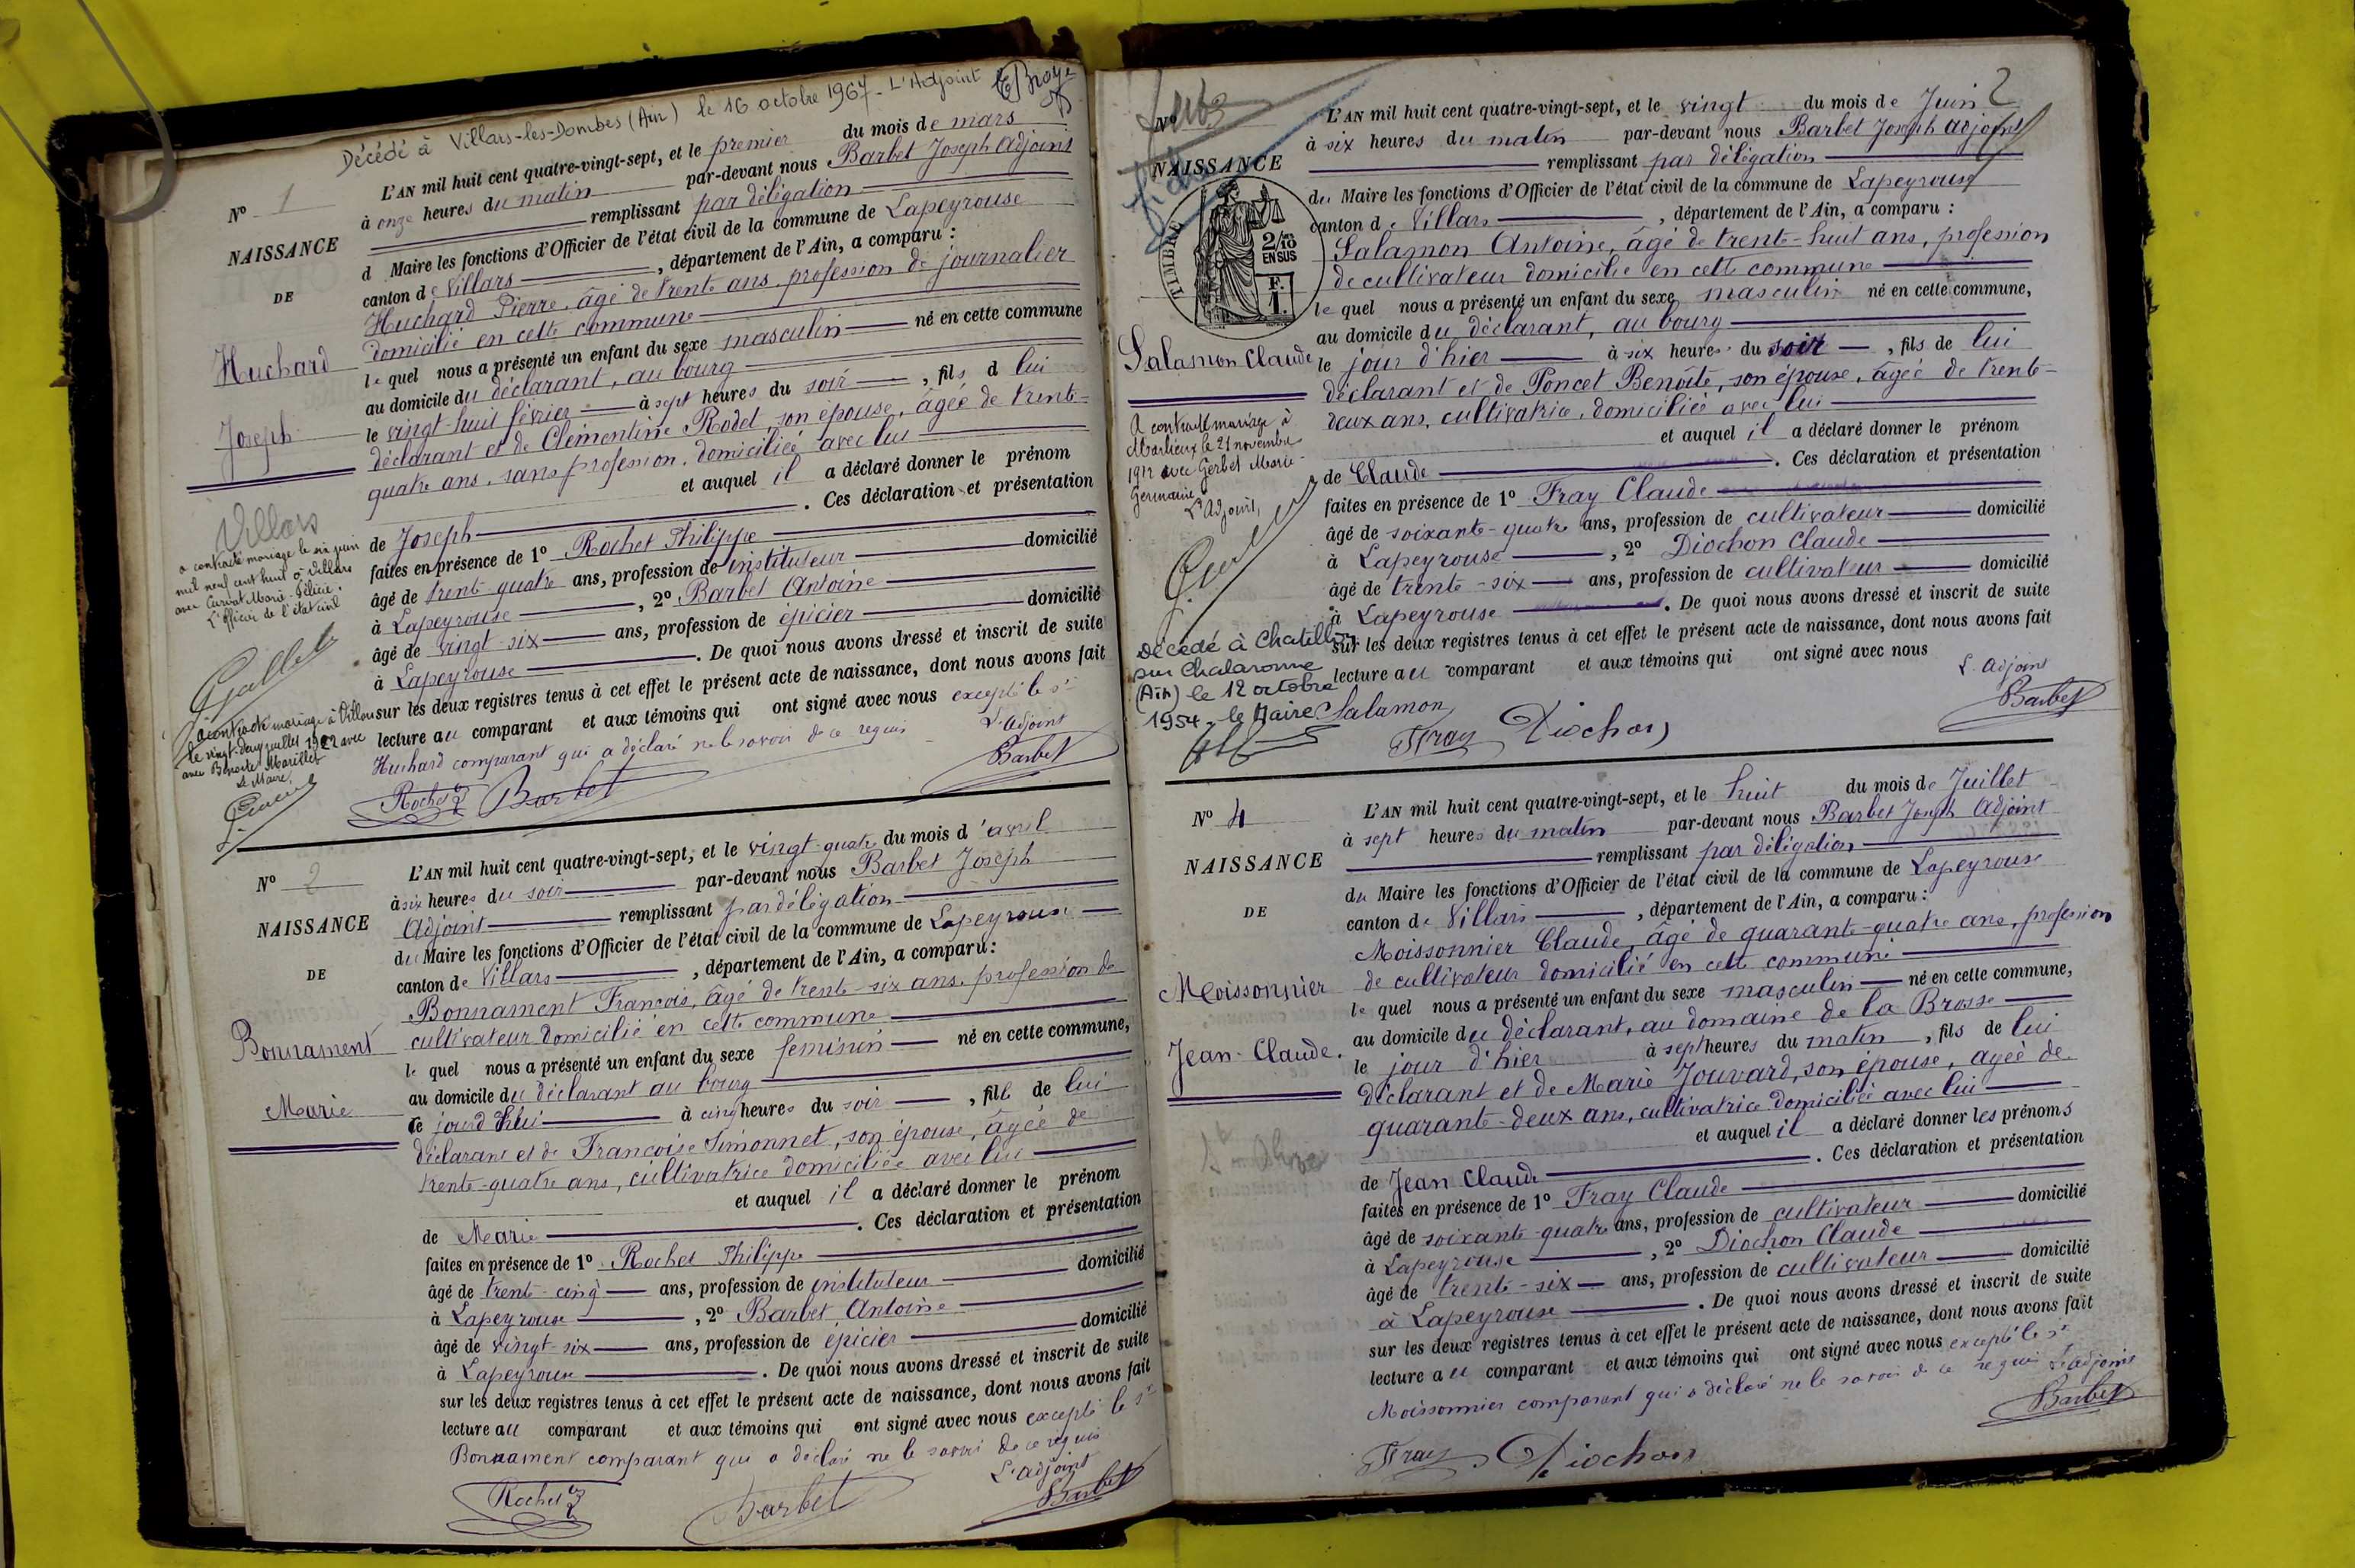 Décédé à Villars-les-Dombes (Ain) le 16 octobre 1967 - L'Adjoint
L'AN mil huit cent quatre-vingt-sept, et le premier du mois de mars
à onze heures du matin par-devant nous Barbet Joseph Adjoint
remplissant par délégation
d Maire les fonctions d'Officier de l'état civil de la commune de Lapeyrouse
canton de Villars , département de l'Ain, a comparu :
Huchard Pierre, âgé de trente ans, profession de journalier
domicilié en cette commune
le quel nous a présenté un enfant du sexe masculin né en cette commune
au domicile du déclarant, au bourg
le vingt-huit février à sept heures du soir , fils d lui
déclarant et de Clémentine Rodet, son épouse, âgée de trente-
quatre ans, sans profession, domiciliée avec lui
et auquel il a déclaré donner le prénom
de Joseph . Ces déclaration et présentation
faites en présence de 1º Rochet Philippe
âgé de trente quatre ans, profession de instituteur domicilié
à Lapeyrouse , 2º Barbet Antoine
âgé de vingt-six ans, profession de épicier domicilié
à Lapeyrouse . De quoi nous avons dressé et inscrit de suite
sur les deux registres tenus à cet effet le présent acte de naissance, dont nous avons fait
lecture au comparant et aux témoins qui ont signé avec nous excepté le sr
Huchard comparant qui a déclaré ne le savoir de ce requis
L'adjoint
Rochet Barbet Barbet
Nº 1
NAISSANCE
DE
Huchard
Joseph
Villars
a contracté mariage le six juin
mil neuf cent huit à Villars
avec Curvat Marie-Félicie.
L'officier de l'état civil
a contracté mariage à Villars
le vingt-deux juillet 1922 avec
avec Benoite Marillet
Le Maire,
Nº 2
NAISSANCE
DE
Bonnament
Marie
L'AN mil huit cent quatre-vingt-sept, et le vingt-quatre du mois d'avril
à six heures du soir par-devant nous Barbet Joseph
Adjoint remplissant par délégation
du Maire les fonctions d'Officier de l'état civil de la commune de Lapeyrouse
canton de Villars , département de l'Ain, a comparu :
Bonnament François, âgé de trente-six ans, profession de
cultivateur domicilié en cette commune
le quel nous a présenté un enfant du sexe féminin né en cette commune,
au domicile du déclarant au bourg
ce jourd'hui à cinq heures du soir , fille de lui
déclarant et de Françoise Simonnet, son épouse, âgée de
trente-quatre ans, cultivatrice domiciliée avec lui
et auquel il a déclaré donner le prénom
de Marie . Ces déclaration et présentation
faites en présence de 1º Rochet Philippe
âgé de trente-cinq ans, profession de instituteur domicilié
à Lapeyrouse , 2º Barbet Antoine
âgé de vingt-six ans, profession de épicier domicilié
à Lapeyrouse . De quoi nous avons dressé et inscrit de suite
sur les deux registres tenus à cet effet le présent acte de naissance, dont nous avons fait
lecture au comparant et aux témoins qui ont signé avec nous excepté le sr
Bonnament comparant qui a déclaré ne le savoir de ce requis
L'adjoint
Rochet Barbet Barbet
2
Nº
NAISSANCE
TIMBRE
2/10
EN SUS
F.
1.
Salamon Claude
A contracté mariage à
Marlieux le 21 novembre
1912 avec Gerbet Marie-
Germaine
L'Adjoint,
Décédé à Chatillon
sur Chalaronne
(Ain) le 12 octobre
1954. le Maire
L'AN mil huit cent quatre-vingt-sept, et le vingt du mois de Juin
à six heures du matin par-devant nous Barbet Joseph adjoint
remplissant par délégation
du Maire les fonctions d'Officier de l'état civil de la commune de Lapeyrouse
canton de Villars , département de l'Ain, a comparu :
Salamon Antoine, âgé de trente-huit ans, profession
de cultivateur domicilié en cette commune
le quel nous a présenté un enfant du sexe masculin né en cette commune,
au domicile du déclarant, au bourg
le jour d'hier à six heures du soir , fils de lui
déclarant et de Poncet Benoîte, son épouse, âgée de trente-
deux ans, cultivatrice, domiciliée avec lui
et auquel il a déclaré donner le prénom
de Claude . Ces déclaration et présentation
faites en présence de 1º Fray Claude
âgé de soixante-quatre ans, profession de cultivateur domicilié
à Lapeyrouse , 2º Diochon Claude
âgé de trente-six ans, profession de cultivateur domicilié
à Lapeyrouse . De quoi nous avons dressé et inscrit de suite
sur les deux registres tenus à cet effet le présent acte de naissance, dont nous avons fait
lecture au comparant et aux témoins qui ont signé avec nous
L'adjoint
Salamon Fray Diochon Barbet
Nº 4
NAISSANCE
DE
Moissonnier
Jean-Claude.
L'AN mil huit cent quatre-vingt-sept, et le huit du mois de Juillet
à sept heures du matin par-devant nous Barbet Joseph Adjoint
remplissant par délégation
du Maire les fonctions d'Officier de l'état civil de la commune de Lapeyrouse
canton de Villars , département de l'Ain, a comparu :
Moissonnier Claude, âgé de quarante-quatre ans, profession
de cultivateur domicilié en cette commune
le quel nous a présenté un enfant du sexe masculin né en cette commune,
au domicile du déclarant, au domaine de la Brosse
le jour d'hier à sept heures du matin , fils de lui
déclarant et de Marie Jouvard, son épouse, âgée de
quarante-deux ans, cultivatrice domiciliée avec lui
et auquel il a déclaré donner les prénoms
de Jean Claude . Ces déclaration et présentation
faites en présence de 1º Fray Claude
âgé de soixante-quatre ans, profession de cultivateur domicilié
à Lapeyrouse , 2º Diochon Claude
âgé de trente-six ans, profession de cultivateur domicilié
à Lapeyrouse . De quoi nous avons dressé et inscrit de suite
sur les deux registres tenus à cet effet le présent acte de naissance, dont nous avons fait
lecture au comparant et aux témoins qui ont signé avec nous excepté le sr
Moissonnier comparant qui a déclaré ne le savoir de ce requis L'adjoint
Fray Diochon Barbet